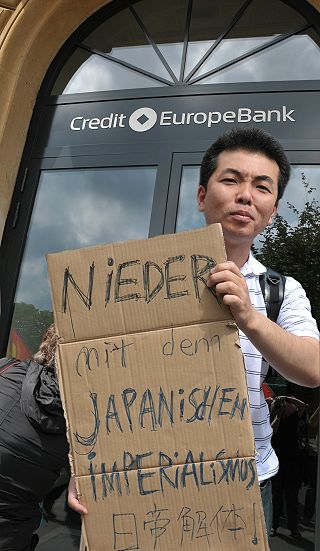 Credit EuropeBank
NiEDER
mit dem
JAPANiSCHEN
iMPERiALiSMUS
日帝解体!